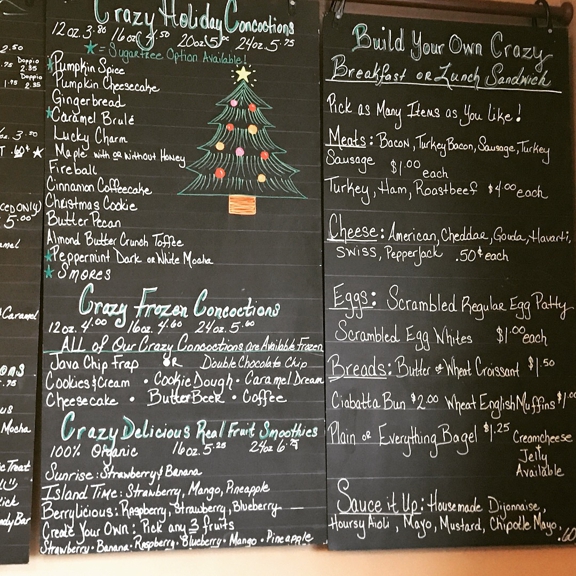 2.50
.75 Doppio 2.85
1.95 Doppio 2.85
a. 3.50
ced only)
5.00
Caramel
ons
.75
us
Mocha
e Treat
ick
dy Bar
Crazy Holiday Concoctions
20oz 5.25 24oz 5.75
Sugarfree Option Available!
Pumpkin Spice
Pumpkin Cheesecake
Gingerbread
Caramel Brulé
Lucky Charm
Maple with or without Honey
Fireball
Cinnamon Coffeecake
Christmas Cookie
Butter Pecan
Almond Butter Crunch Toffee
Peppermint Dark or White Mocha
Smores
Crazy Frozen Concoctions
12oz. 4.00 16oz. 4.60 24oz. 5.60
All of Our Crazy Concoctions are Available Frozen
Java Chip Frap or Double Chocolate Chip
Cookies & Cream • Cookie Dough • Caramel Dream
Cheesecake • ButterBeer • Coffee
Crazy Delicious Real Fruit Smoothies
100% Organic 16oz 5.25 24oz 6.75
Sunrise: Strawberry & Banana
Island Time: Strawberry, Mango, Pineapple
Berrylicious: Raspberry, Strawberry, Blueberry
Create Your Own: Pick any 3 fruits
Strawberry • Banana • Raspberry • Blueberry • Mango • Pineapple
Build Your Own Crazy
Breakfast or Lunch Sandwich
Pick as Many Items as You Like!
Meats: Bacon, Turkey Bacon, Sausage, Turkey
Sausage $1.00 each
Turkey, Ham, Roastbeef $4.00 each
Cheese: American, Cheddar, Gouda, Havarti,
Swiss, Pepperjack .50¢ each
Eggs: Scrambled Regular Egg Patty
Scrambled Egg Whites $1.00 each
Breads: Butter or Wheat Croissant $1.50
Ciabatta Bun $2.00 Wheat English Muffins $1.00
Plain or Everything Bagel $1.25 Creamcheese
Jelly
Available
Sauce it Up: Housemade Dijonnaise,
Hoursey Aioli, Mayo, Mustard, Chipotle Mayo .60